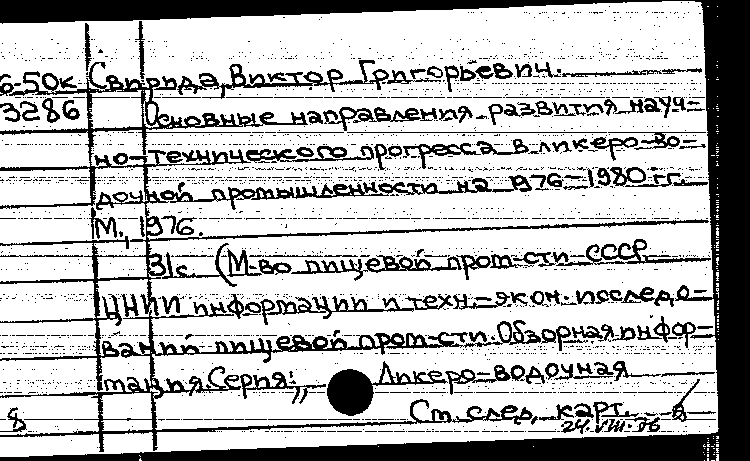 6-50к Свирида, Виктор Григорьевич.
3286 Основные направления развития науч-
но-технического прогресса в ликеро-во-
дочной промышленности на 1976-1980 гг.
М., 1976.
31с. (М-во пищевой пром-сти СССР.
ЦНИИ информации и техн.-экон. исследо-
ваний пищевой пром-сти. Обзорная инфор-
мация. Серия: „Ликеро-водочная
См. след. карт.
24.VIII.76
8